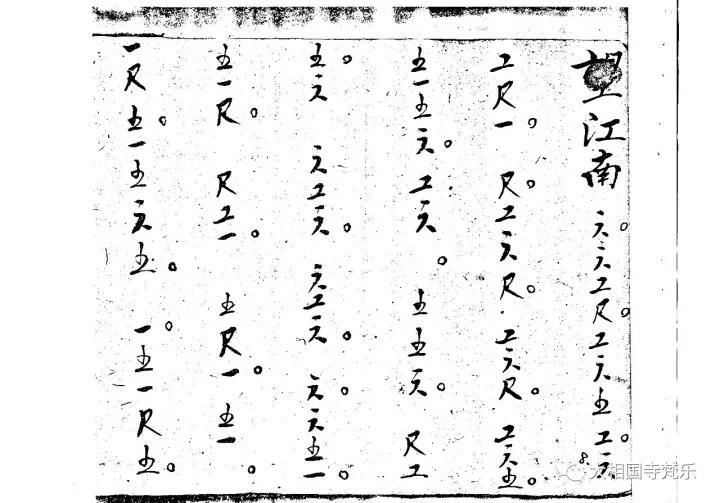 望江南 六。六工尺。工六五工。六
工尺一。 尺。工六尺。工六尺。 工六五。
五一五六。工六。 五五六。 尺工
五。六 六工六。 六工六。 六。六五一。
五一尺。 尺工一。 五尺一。五一。
一尺五。一五六五。 一。五一尺五。
大相国寺梵乐